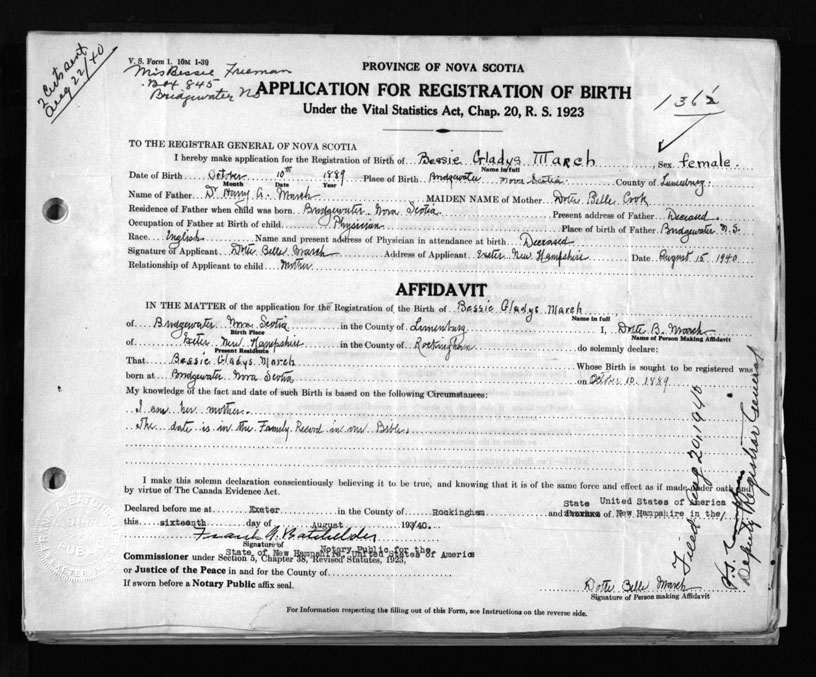 2 Certs sent
Aug 22/40
V. S. Form 1. 10M 1-39
Mrs Bessie Freeman
Box 845
Bridgewater NS
PROVINCE OF NOVA SCOTIA
APPLICATION FOR REGISTRATION OF BIRTH
Under the Vital Statistics Act, Chap. 20, R. S. 1923
TO THE REGISTRAR GENERAL OF NOVA SCOTIA
I hereby make application for the Registration of Birth of Bessie Gladys March, Sex female.
Name in full
Date of Birth October 10th 1889 Place of Birth Bridgewater Nova Scotia County of Lunenburg
Month Date Year
Name of Father Dr Harry A. March MAIDEN NAME of Mother Dotte Belle Cook
Residence of Father when child was born. Bridgewater Nova Scotia Present address of Father Deceased
Occupation of Father at Birth of child. Physician Place of birth of Father Bridgewater N.S.
Race. English Name and present address of Physician in attendance at birth. Deceased
Signature of Applicant Dotte Belle March Address of Applicant Exeter New Hampshire Date August 15 1940
Relationship of Applicant to child Mother
AFFIDAVIT
IN THE MATTER of the application for the Registration of the Birth of Bessie Gladys March
Name in full
of Bridgewater Nova Scotia in the County of Lunenburg I, Dotte B. March
Birth Place Name of Person Making Affidavit
of Exeter New Hampshire in the County of Rockingham do solemnly declare:
Present Residence
That Bessie Gladys March Whose Birth is sought to be registered was
born at Bridgewater Nova Scotia on October 10. 1889
My knowledge of the fact and date of such Birth is based on the following Circumstances:
I am her mother.
The date is in the Family Record in our Bible.
I make this solemn declaration conscientiously believing it to be true, and knowing that it is of the same force and effect as if made under oath and
by virtue of The Canada Evidence Act.
State United States of America
Declared before me at Exeter in the County of Rockingham and New Hampshire in the/
this sixteenth day of August 1940.
Frank A. Batchelder
Signature of
Notary Public for the
State of New Hampshire, United States of America
Commissioner under Section 5, Chapter 38, Revised Statutes, 1923,
or Justice of the Peace in and for the County of
If sworn before a Notary Public affix seal.
Dotte Belle March
Signature of Person making Affidavit
For Information respecting the filling out of this Form, see Instructions on the reverse side.
Filed Aug 20, 1940
Deputy Registrar General